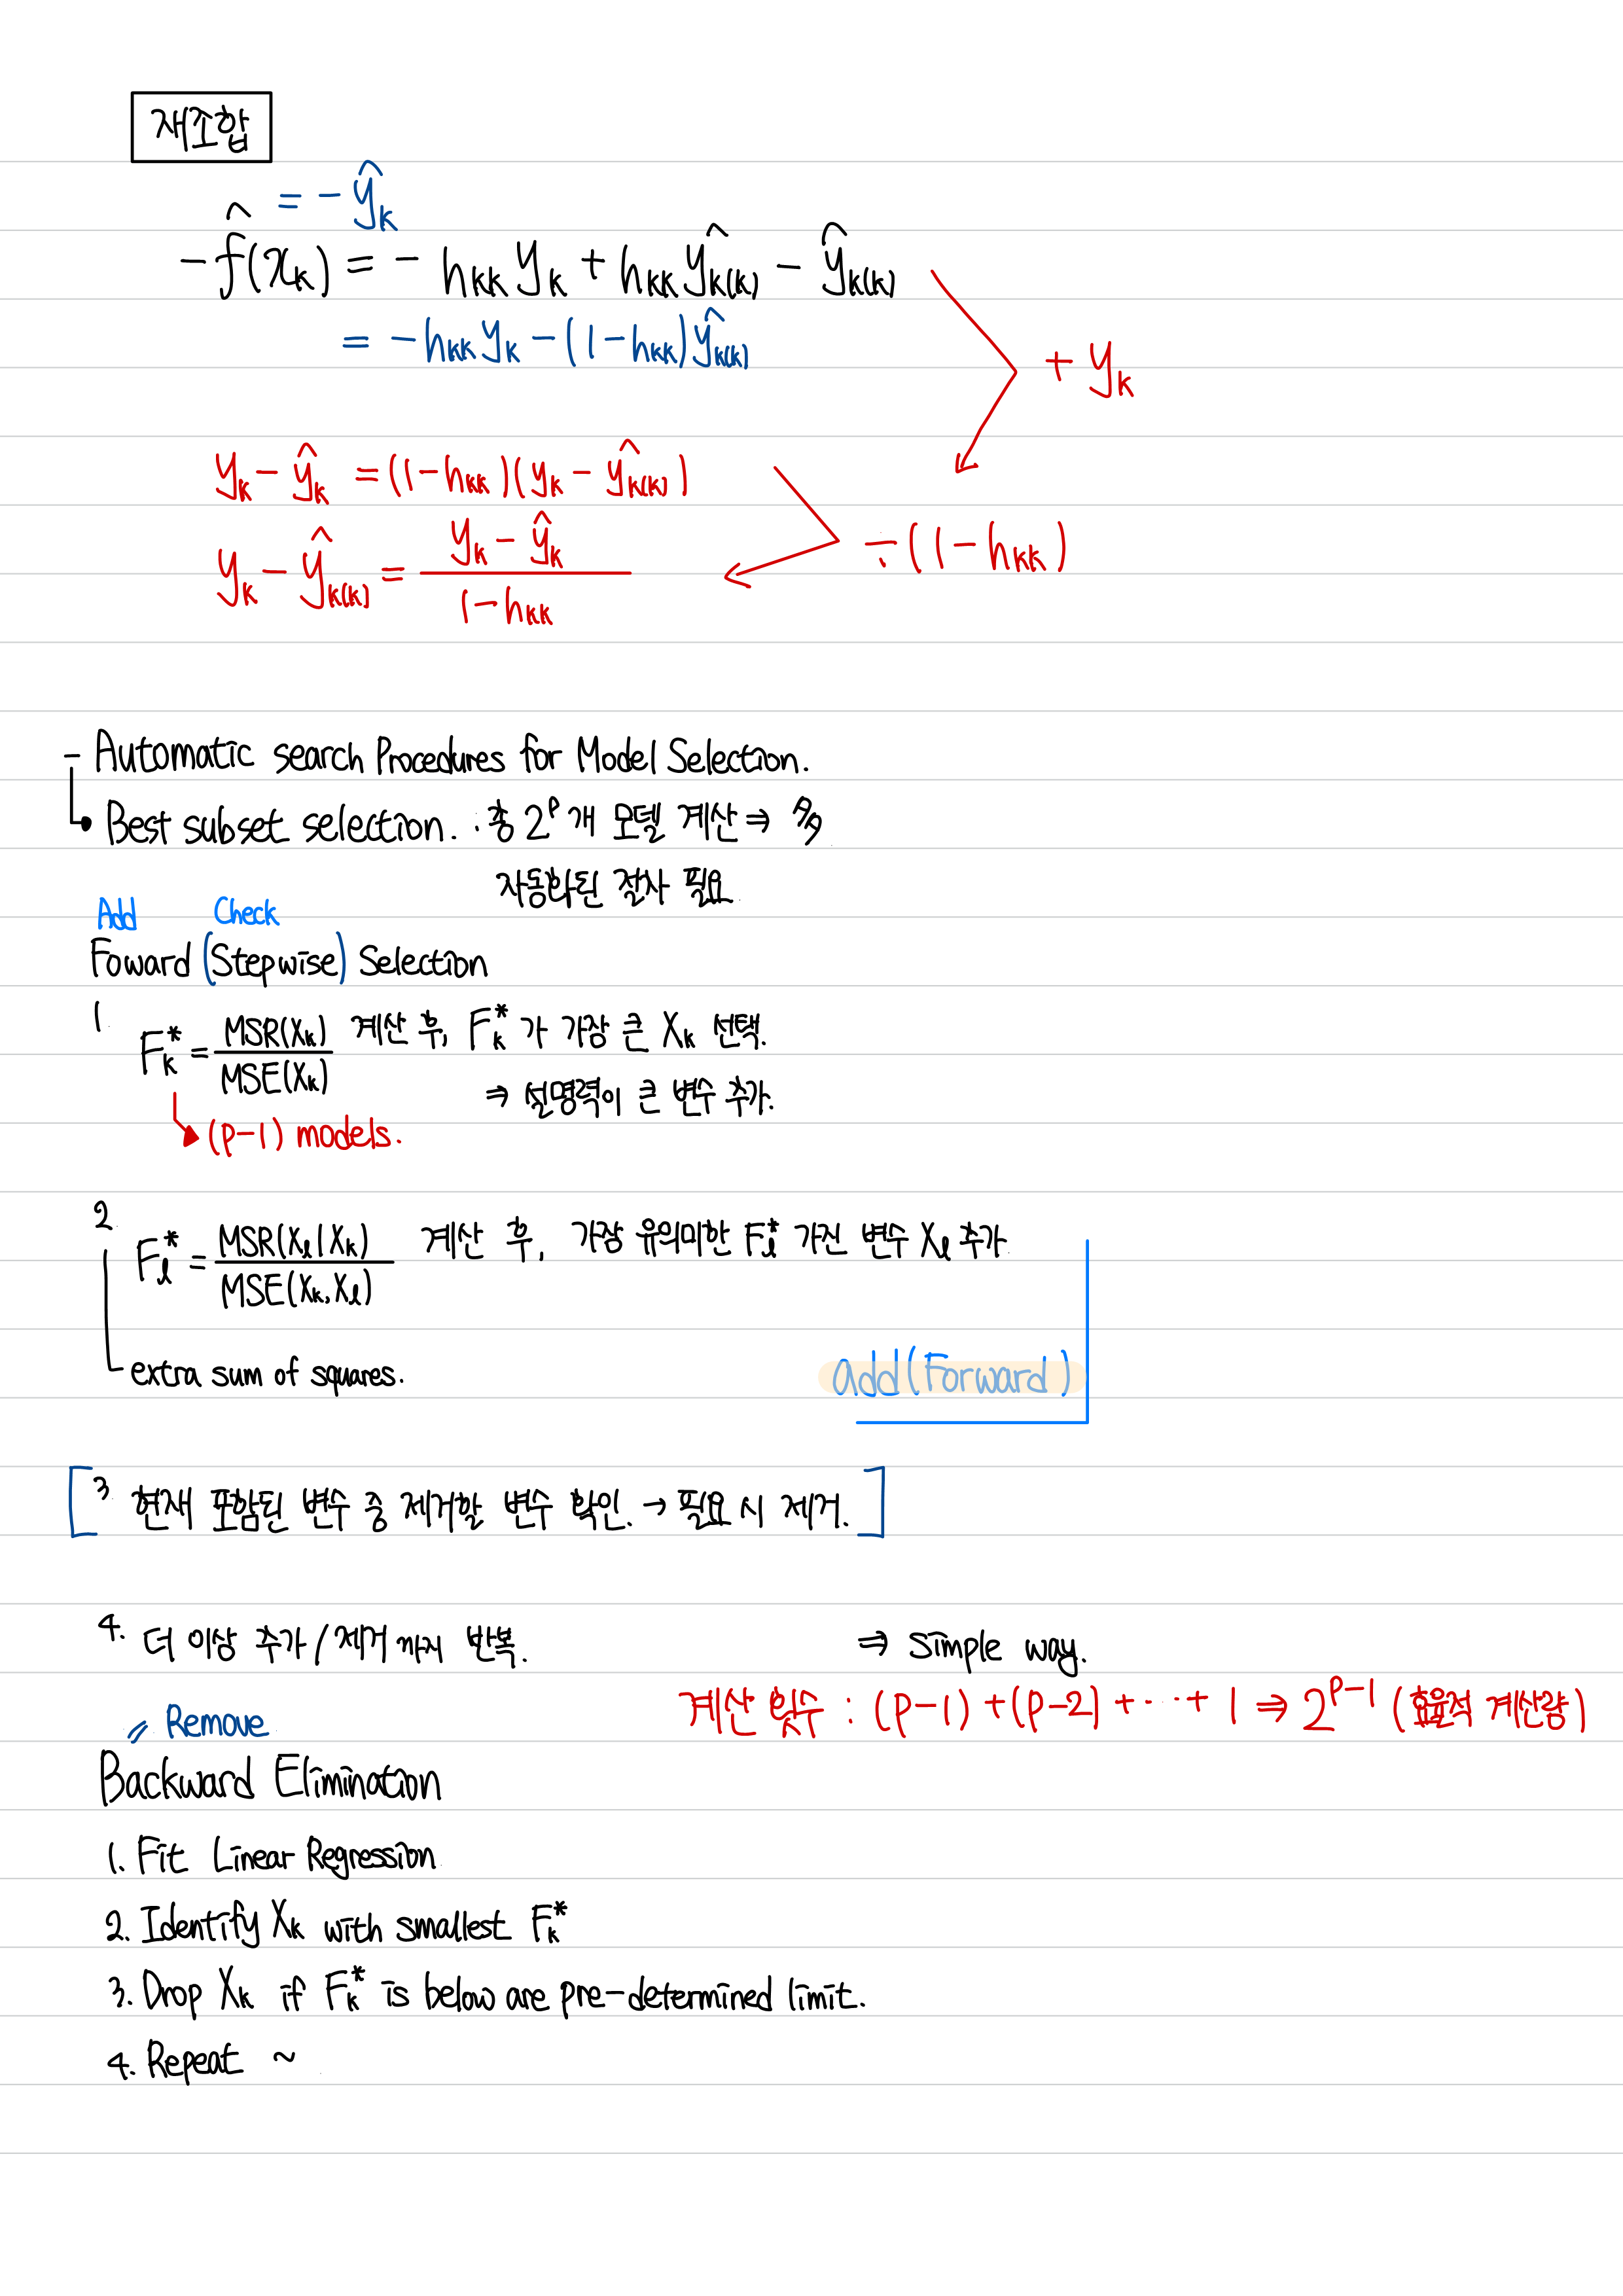 재조합
= - ŷ_k
- f̂(x_k) = - h_kk y_k + h_kk ŷ_k(k) - ŷ_k(k)
= - h_kk y_k - (1 - h_kk) ŷ_k(k)
+ y_k
y_k - ŷ_k = (1 - h_kk)(y_k - ŷ_k(k))
y_k - ŷ_k(k) = (y_k - ŷ_k) / (1 - h_kk)
÷ (1 - h_kk)
- Automatic search Procedures for Model Selection.
Best subset selection. : 총 2^p개 모델 계산 ⇒ 多
자동화된 절차 필요.
Add Check
Foward (Stepwise) Selection
1. F_k^* = MSR(X_k) / MSE(X_k) 계산 후, F_k^* 가 가장 큰 X_k 선택.
⇒ 설명력이 큰 변수 추가.
(p-1) models.
2. F_l^* = MSR(X_l | X_k) / MSE(X_k, X_l) 계산 후, 가장 유의미한 F_l^* 가진 변수 X_l 추가
extra sum of squares.
add (Forward)
[3. 현재 포함된 변수 중 제거할 변수 확인. → 필요 시 제거.]
4. 더 이상 추가/제거 까지 반복.
⇒ simple way.
계산 횟수 : (p-1) + (p-2) + ··· + 1 ⇒ 2^(p-1) (효율적 계산량)
Remove
Backward Elimination
1. Fit Linear Regression
2. Identify X_k with smallest F_k^*
3. Drop X_k if F_k^* is below are pre-determined limit.
4. Repeat ~